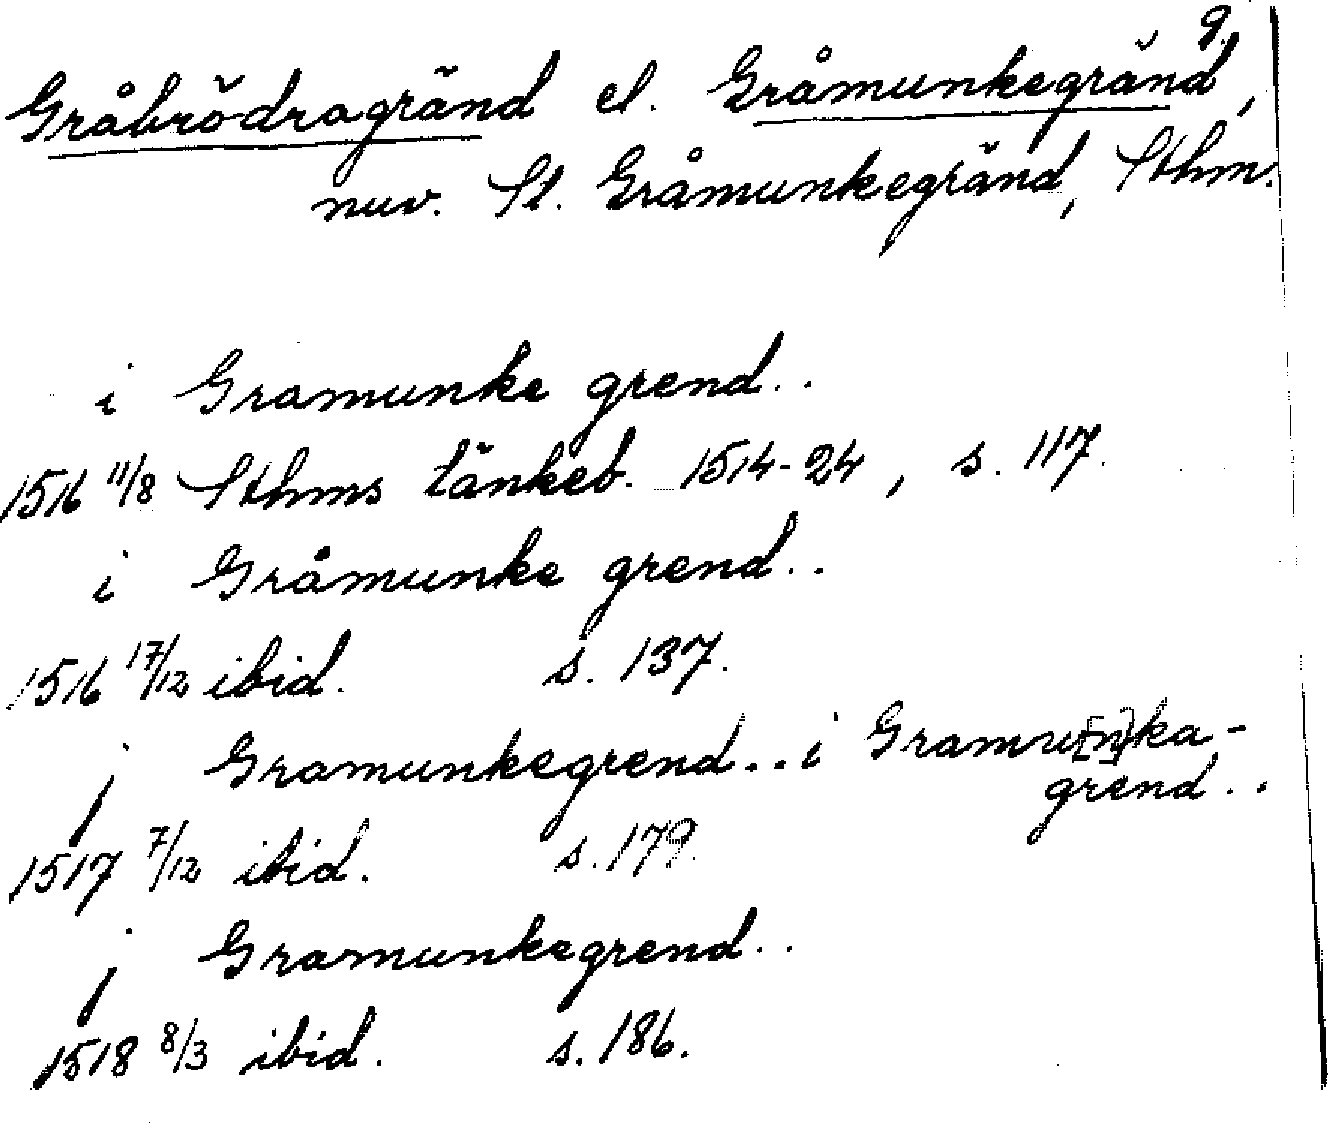 9.
Gråbrödragränd el. Gråmunkegränd,
nuv. St. Gråmunkegränd, Sthm.
i Gramunke grend..
1516 11/8 Sthms tänkeb. 1514-24, s. 117.
i Gråmunke grend..
1516 17/12 ibid. s. 137.
j Gramunkegrend.. i Gramu[n]ka-
grend..
1517 7/12 ibid. s. 179.
j Gramunkegrend..
1518 8/3 ibid. s. 186.